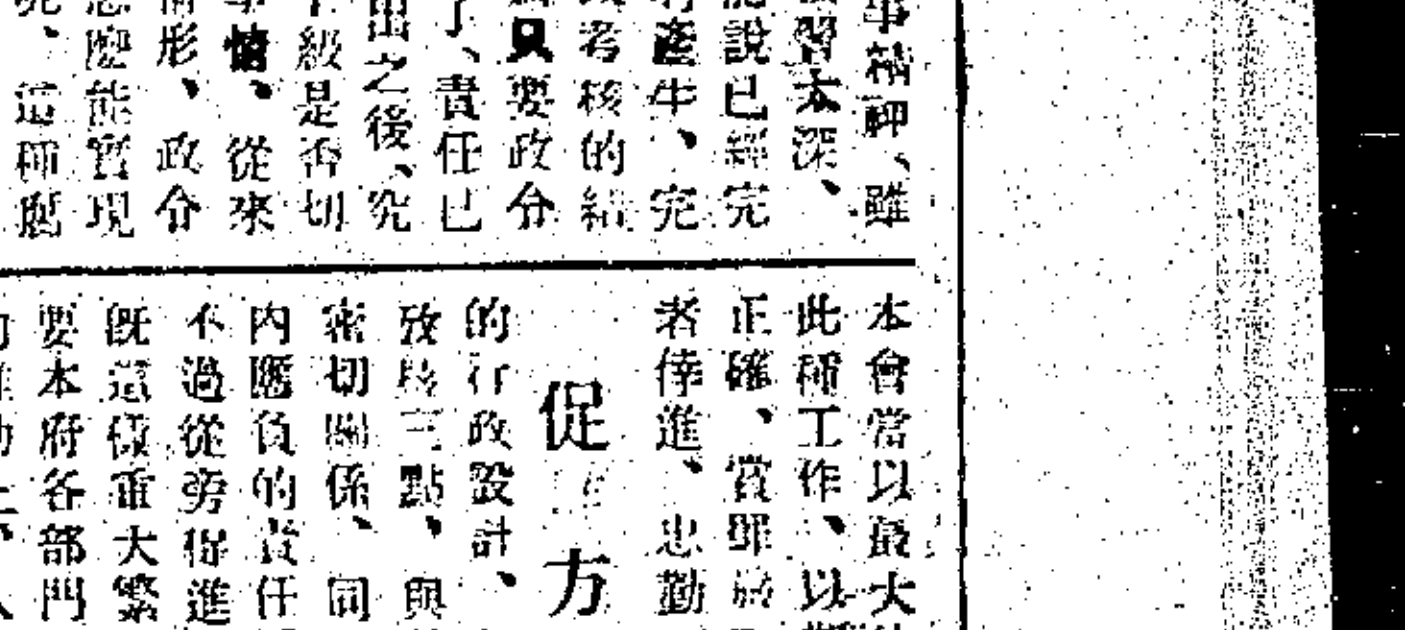 事精神、雖
習太深、
說已經完
產生、完
考核的結
只要政分
了、責任已
出之後、究
級是否切
情、從來
形、政分
麼能實現
這種應
本會當以最大
此種工作、以
正確、賞罪
者倖進、忠勤
促 方
的行政設計、
攷核三點、與
密切關係、同
內應負的責任
不過從旁得進
既這樣重大繁
要本府各部門